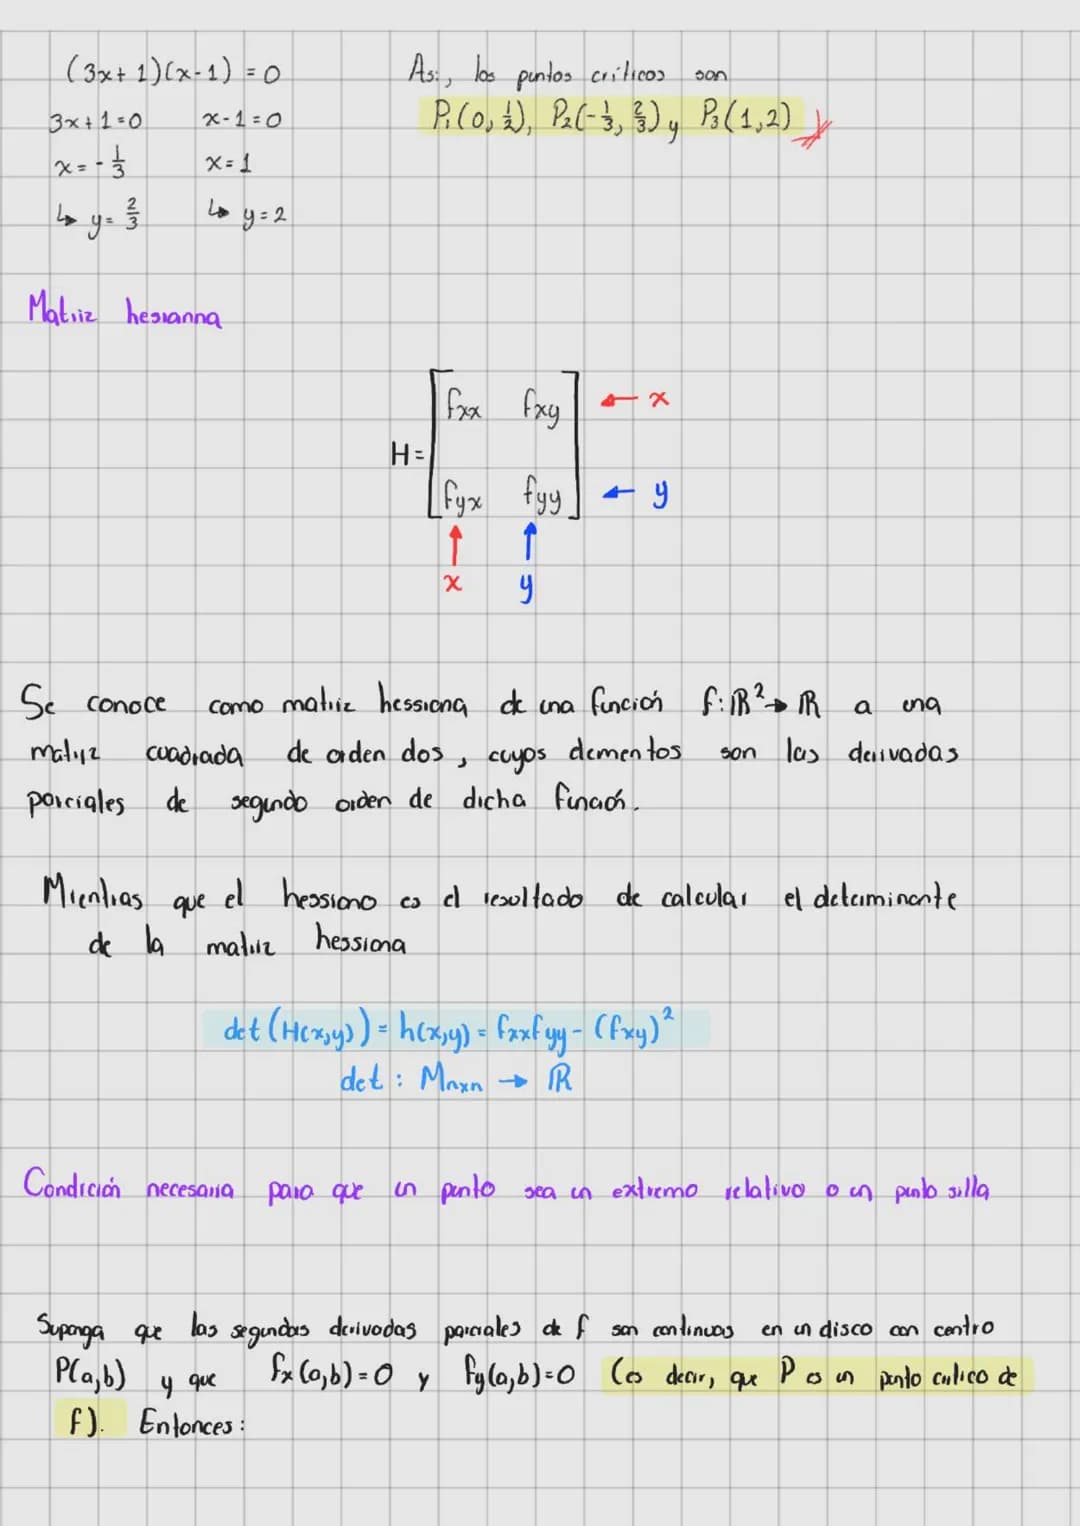 (3x+1)(x-1) = 0
3x+1=0 x-1=0
x = -1/3 x=1
↳ y= 2/3 ↳ y=2
Así, los puntos críticos son
P₁(0, 1/2), P₂(-1/3, 2/3) y P₃(1,2)
Matriz hesianna
H = [fxx fxy] ← x
[fyx fyy] ← y
↑ ↑
x y
Se conoce como matriz hessiana de una función f: ℝ² → ℝ a una
matriz cuadrada de orden dos, cuyos elementos son las derivadas
parciales de segundo orden de dicha función.
Mientras que el hessiano es el resultado de calcular el determinante
de la matriz hessiana
det(H(x,y)) = h(x,y) = fxxfyy - (fxy)²
det : Mnxn → ℝ
Condición necesaria para que un punto sea un extremo relativo o un punto silla
Suponga que las segundas derivadas parciales de f son continuas en un disco con centro
P(a,b) y que fx(a,b)=0 y fy(a,b)=0 (es decir, que P es un punto crítico de
f). Entonces: